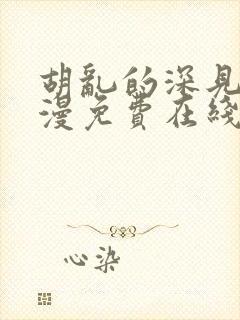 胡亂的深見
漫免費在綫
心染